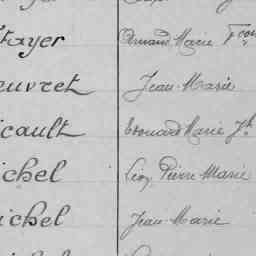 ayer Armand Marie Fçois
euvret Jean-Marie
icault Edouard Marie Jh
ichel Léon Pierre-Marie
ichel Jean-Marie